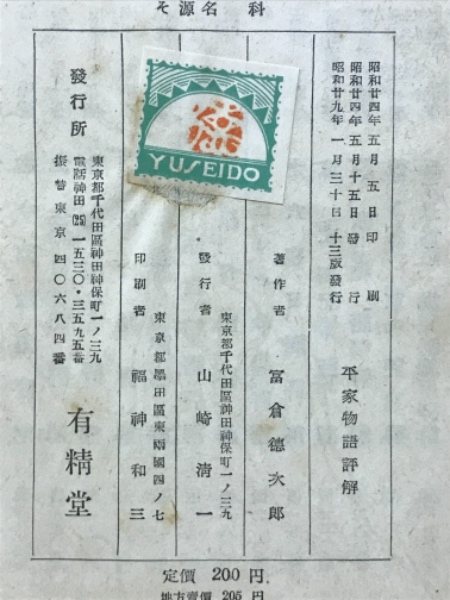 科 名 源 そ
昭和廿四年五月五日印刷
昭和廿四年五月十五日發行
昭和廿九年一月三十日十三版發行
平家物語評解
著作者 冨倉德次郎
東京都千代田區神田神保町一ノ三九
發行者 山崎淸一
東京都墨田區東兩國四ノ七
印刷者 福神和三
YUSEIDO
發行所
東京都千代田區神田神保町一ノ三九
電話神田(25)一五三〇・三五九五番
振替東京四〇六八四番
有精堂
定價 200 円
地方賣價 205 円